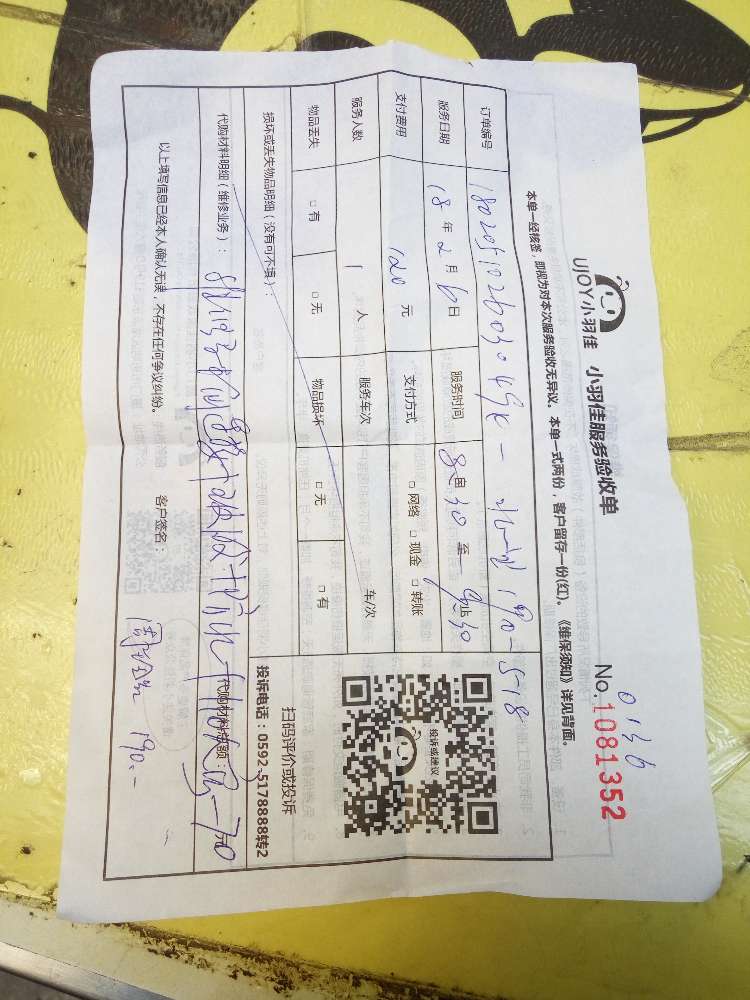 UJOY小羽佳 小羽佳服务验收单
0136
No.1081352
本单一经核签,即视为对本次服务验收无异议。本单一式两份,客户留存一份(红)。《维保须知》详见背面。
订单编号
服务日期 18年2月6日 服务时间 8自30至9止30
支付费用 120元 支付方式 □网络 □现金 □转账
服务人数 1人 服务车次 车/次
物品丢失 □有 □无 物品损坏 □无 □有
投诉或建议
扫码评价或投诉
投诉电话:0592-5178888转2
损坏或丢失物品明细(没有可不填):
代购材料明细(维修业务): 代购材料总额 70元
以上填写信息已经本人确认无误,不存在任何争议纠纷。 客户签名: 190.-